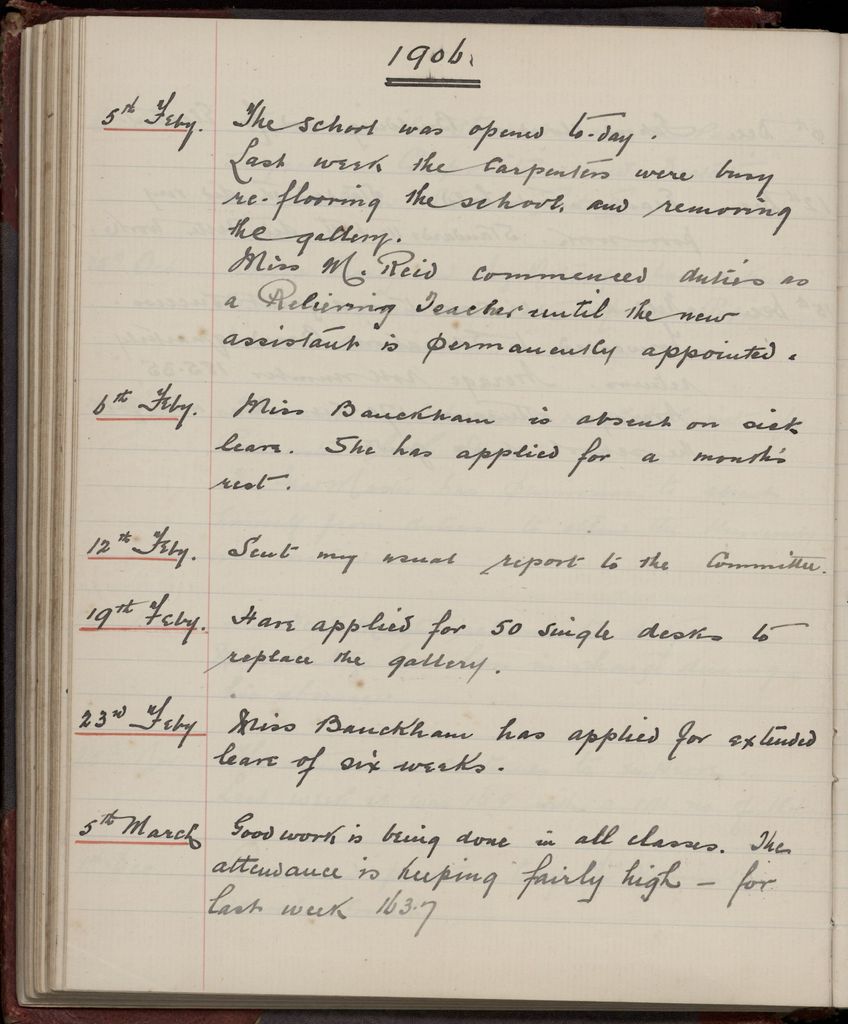 1906.
5th Feby. The school was opened to-day.
Last week the Carpenters were busy
re-flooring the school, and removing
the gallery.
Miss M. Reid commenced duties as
a Relieving Teacher until the new
assistant is permanently appointed.
6th Feby. Miss Bauckham is absent on sick
leave. She has applied for a month's
rest.
12th Feby. Sent my usual report to the Committee.
19th Feby. Have applied for 50 single desks to
replace the gallery.
23rd Feby Miss Bauckham has applied for extended
leave of six weeks.
5th March Good work is being done in all classes. The
attendance is keeping fairly high – for
last week 163.7